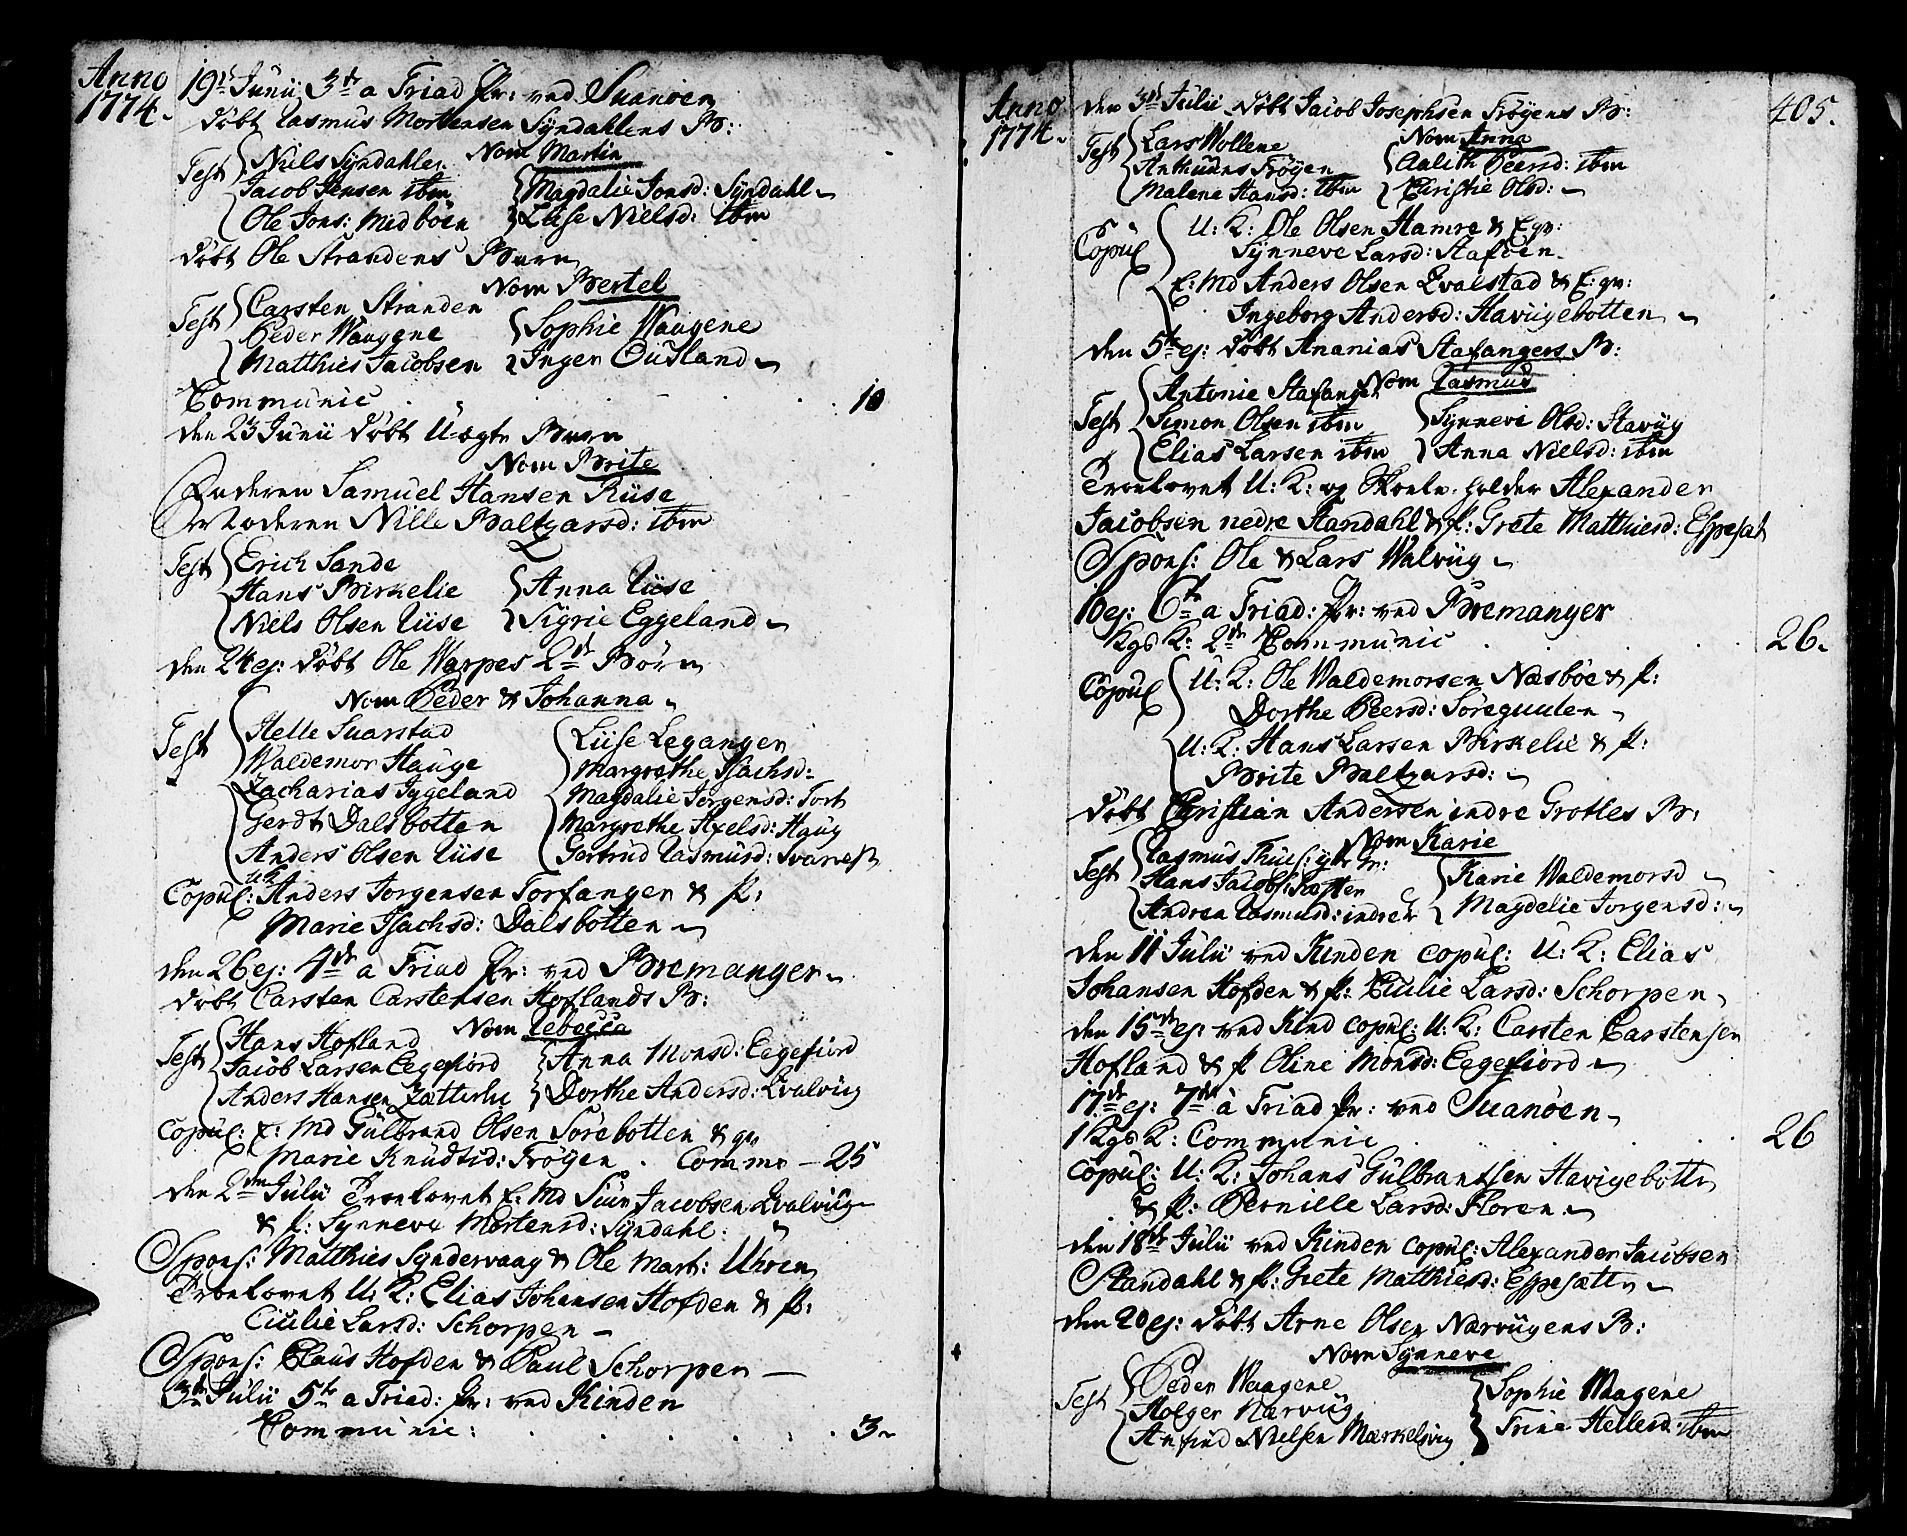 Anno 1774.
19de Junii 3de a Triad Pr: ved Suanöen
döbt Rasmus Mortensen Syndahlens B:
Nom Martin
Test Niels Syndahle
Jacob Jensen ibm Magdalie Jonsd: Syndahl
Ole Jons: Medböen Liise Nielsd: ibm
döbt Ole Strandens Barn
Nom Bertel
Test Carsten Stranden
Peder Waagene Sophie Waagene
Matthies Jacobsen Inger Outland
Communic 10
den 23 Junii döbt U-ægte Barn
Nom Brite
Faderen Samuel Hansen Riise
Moderen Nille Baltzarsd: ibm
Test Erich Sande
Hans Birkelie Anna Riise
Niels Olsen Riise Sigrie Eggeland
den 24 ej: döbt Ole Warpes 2de Börn
Nom Peder & Johanna
Test Helle Suarstad Liise Leganger
Waldemor Hauge Margrethe Isachsd:
Zacharias Jygeland Magdalie Jorgensd: Torf
Gerdt Dalsbotten Margrethe Axelsd: Haug
Anders Olsen Riise Gertrud Rasmusd: Svanes
Copul: UK Anders Jorgensen Torfanger & p:
Marie Isachsd: Dalsbotten
den 26 ej: 4de a Triad Pr: ved Bremanger
döbt Carsten Carstensen Hoflands B:
Nom Rebecca
Test Hans Hofland
Jacob Larsen Eegefiord Anna Monsd: Eegefiord
Anders Hansen Zætterlie Dorthe Andersd: Qvalviig
Copul: E: Md Gulbrand Olsen Sörebotten & qv
Marie Knudtsd: Fröyen Commu 25
den 2den Julii Troelovet E: Md Siur Jacobsen Qvalviig
& p: Synneve Mortensd: Syndahl:
Spons: Matthies Syndervaag & Ole Mart: Uhren
Troelovet U: K: Elias Johansen Hofden & p:
Ciulie Larsd: Schorpen
Spons: Claus Hofden & Paul Schorpen
3de Julii 5te a Triad: Pr: ved Kinden
Communic: 3
Anno 1774. 405.
den 3de Julii döbt Jacob Josephsen Fröyens B:
Nom Anna
Test Lars Wollene
Anthuns Fröyen Aalith Peersd: ibm
Malene Hansd: ibm Christie Olsd:
Copul U: K: Ole Olsen Hamre & E qv:
Synneve Larsd: Staföen
E: Md Anders Olsen Qvalstad & E: qv:
Ingeborg Andersd: Haviigebotten
den 5te ej: döbt Ananias Stafangers B:
Nom Rasmus
Test Antonie Stafanger
Simon Olsen ibm Synnevi Olsd: Staviig
Elias Larsen ibm Anna Nielsd: ibm
Troelovet U: K: og Skoele-holder Alexander
Jacobsen nedre Standahl & p: Grete Matthiesd: Espesat
Spons: Ole & Lars Walviig
10 ej: 6te a Triad: Pr: ved Bremanger
Kgs K: 2de Communic 26.
Copul U: K: Ole Waldemorsen Næsböe & p:
Dorthe Peersd: Söreguulen
U: K: Hans Larsen Birkelie & p:
Brite Baltzarsd:
döbt Christian Andersen indre Grotles B:
Nom Karie
Test Rasmus Thiis: ytr Gr:
Hans Jacobs: Karie Waldemorsd
Andrea Rasmusd: indre Magdelie Jorgensd:
den 11 Julii ved Kinden copul: U: K: Elias
Johansen Hofden & p: Ciulie Larsd: Schorpen
den 15de ej: ved Kind copul: U: K: Carsten Carstensen
Hofland & p Oline Monsd: Eegefiord
17de ej: 7de a Triad Pr: ved Suanöen
1 Kgs K: Communic 26
Copul: U: K: Johans Gulbrantsen Havigebotten
& p: Pernille Larsd: Floren
den 18de Julii ved Kinden copul: Alexander Jacobsen
Standahl & p: Grete Matthiesd: Espesætte
den 20 ej: döbt Arne Olsen Narviigens B:
Nom Synneve
Test Peder Waagene Sophie Waagene
Holger Narviig Trine Hellesd: ibm
Anfind Nielsen Mærkelviig